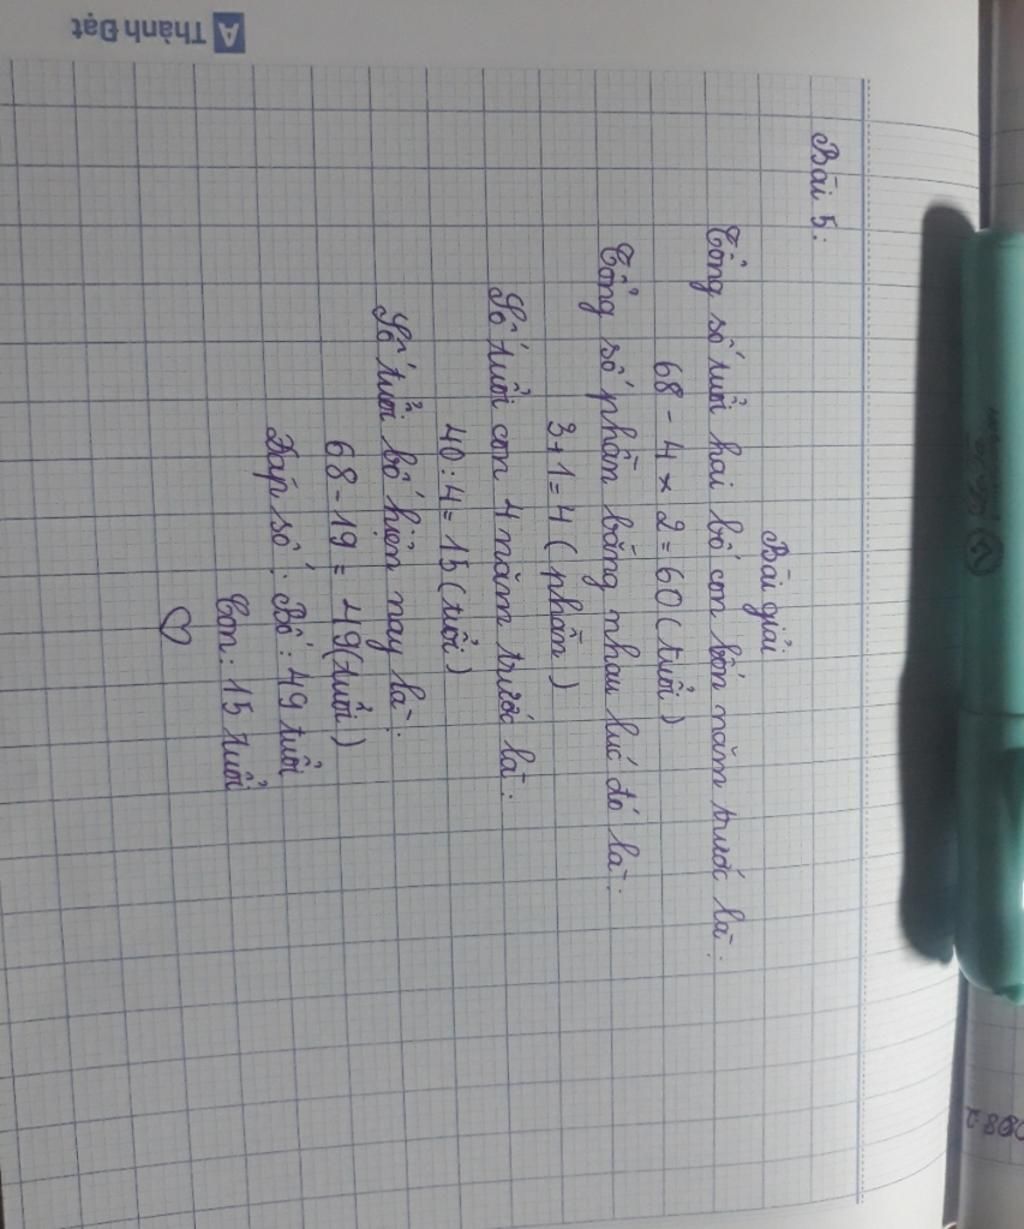 Bài 5:
Bài giải
Tổng số tuổi hai bố con bốn năm trước là:
68 - 4 × 2 = 60 (tuổi)
Tổng số phần bằng nhau lúc đó là:
3 + 1 = 4 (phần)
Số tuổi con 4 năm trước là:
40 : 4 = 15 (tuổi)
Số tuổi bố hiện nay là:
68 - 19 = 49 (tuổi)
Đáp số: Bố: 49 tuổi
Con: 15 tuổi
A Thành Đạt